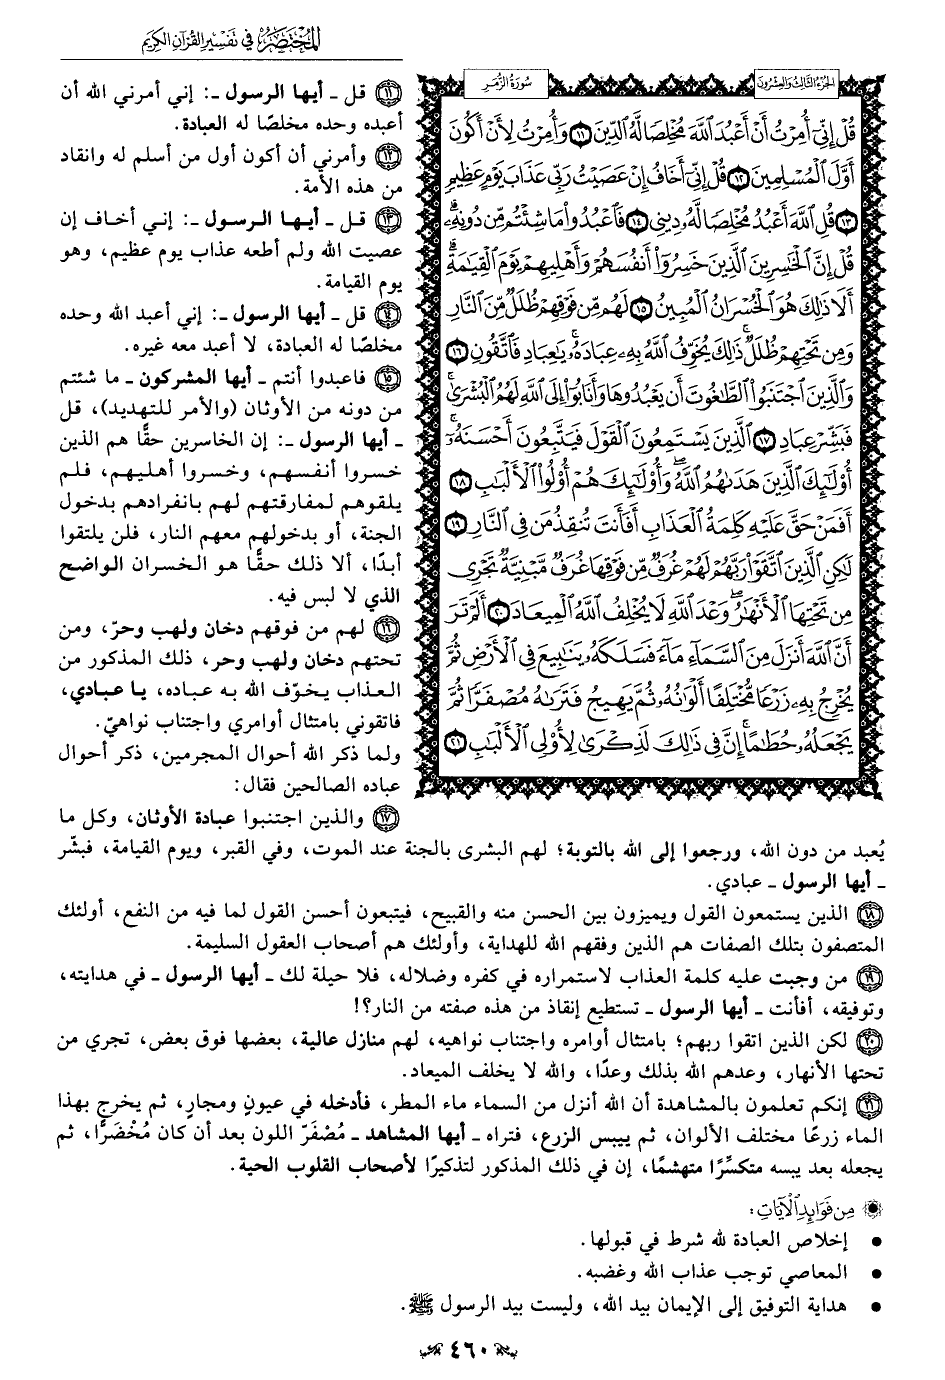 المختصر في تفسير القرآن الكريم
الجزء الثالث والعشرون
سورة الزمر
قُلْ إِنِّيٓ أُمِرْتُ أَنْ أَعْبُدَ ٱللَّهَ مُخْلِصٗا لَّهُ ٱلدِّينَ ١١ وَأُمِرْتُ لِأَنْ أَكُونَ
أَوَّلَ ٱلْمُسْلِمِينَ ١٢ قُلْ إِنِّيٓ أَخَافُ إِنْ عَصَيْتُ رَبِّي عَذَابَ يَوْمٍ عَظِيمٖ
١٣ قُلِ ٱللَّهَ أَعْبُدُ مُخْلِصٗا لَّهُۥ دِينِي ١٤ فَٱعْبُدُواْ مَا شِئْتُم مِّن دُونِهِۦۗ
قُلْ إِنَّ ٱلْخَٰسِرِينَ ٱلَّذِينَ خَسِرُوٓاْ أَنفُسَهُمْ وَأَهْلِيهِمْ يَوْمَ ٱلْقِيَٰمَةِۗ
أَلَا ذَٰلِكَ هُوَ ٱلْخُسْرَانُ ٱلْمُبِينُ ١٥ لَهُم مِّن فَوْقِهِمْ ظُلَلٞ مِّنَ ٱلنَّارِ
وَمِن تَحْتِهِمْ ظُلَلٞۚ ذَٰلِكَ يُخَوِّفُ ٱللَّهُ بِهِۦ عِبَادَهُۥۚ يَٰعِبَادِ فَٱتَّقُونِ ١٦
وَٱلَّذِينَ ٱجْتَنَبُواْ ٱلطَّٰغُوتَ أَن يَعْبُدُوهَا وَأَنَابُوٓاْ إِلَى ٱللَّهِ لَهُمُ ٱلْبُشْرَىٰۚ
فَبَشِّرْ عِبَادِ ١٧ ٱلَّذِينَ يَسْتَمِعُونَ ٱلْقَوْلَ فَيَتَّبِعُونَ أَحْسَنَهُۥٓۚ
أُوْلَٰٓئِكَ ٱلَّذِينَ هَدَىٰهُمُ ٱللَّهُۖ وَأُوْلَٰٓئِكَ هُمْ أُوْلُواْ ٱلْأَلْبَٰبِ ١٨
أَفَمَنْ حَقَّ عَلَيْهِ كَلِمَةُ ٱلْعَذَابِ أَفَأَنتَ تُنقِذُ مَن فِي ٱلنَّارِ ١٩
لَٰكِنِ ٱلَّذِينَ ٱتَّقَوْاْ رَبَّهُمْ لَهُمْ غُرَفٞ مِّن فَوْقِهَا غُرَفٞ مَّبْنِيَّةٞ تَجْرِي
مِن تَحْتِهَا ٱلْأَنْهَٰرُۖ وَعْدَ ٱللَّهِ لَا يُخْلِفُ ٱللَّهُ ٱلْمِيعَادَ ٢٠ أَلَمْ تَرَ
أَنَّ ٱللَّهَ أَنزَلَ مِنَ ٱلسَّمَآءِ مَآءٗ فَسَلَكَهُۥ يَنَٰبِيعَ فِي ٱلْأَرْضِ ثُمَّ
يُخْرِجُ بِهِۦ زَرْعٗا مُّخْتَلِفًا أَلْوَٰنُهُۥ ثُمَّ يَهِيجُ فَتَرَىٰهُ مُصْفَرّٗا ثُمَّ
يَجْعَلُهُۥ حُطَٰمًاۚ إِنَّ فِي ذَٰلِكَ لَذِكْرَىٰ لِأُوْلِي ٱلْأَلْبَٰبِ ٢١
١١ قل ـ أيها الرسول ـ: إني أمرني الله أن
أعبده وحده مخلصًا له العبادة.
١٢ وأمرني أن أكون أول من أسلم له وانقاد
من هذه الأمة.
١٣ قل ـ أيها الرسول ـ: إني أخاف إن
عصيت الله ولم أطعه عذاب يوم عظيم، وهو
يوم القيامة.
١٤ قل ـ أيها الرسول ـ: إني أعبد الله وحده
مخلصًا له العبادة، لا أعبد معه غيره.
١٥ فاعبدوا أنتم ـ أيها المشركون ـ ما شئتم
من دونه من الأوثان (والأمر للتهديد)، قل
ـ أيها الرسول ـ: إن الخاسرين حقًّا هم الذين
خسروا أنفسهم، وخسروا أهليهم، فلم
يلقوهم لمفارقتهم لهم بانفرادهم بدخول
الجنة، أو بدخولهم معهم النار، فلن يلتقوا
أبدًا، ألا ذلك حقًّا هو الخسران الواضح
الذي لا لبس فيه.
١٦ لهم من فوقهم دخان ولهب وحرّ، ومن
تحتهم دخان ولهب وحر، ذلك المذكور من
العذاب يخوّف الله به عباده، يا عبادي،
فاتقوني بامتثال أوامري واجتناب نواهيّ.
ولما ذكر الله أحوال المجرمين، ذكر أحوال
عباده الصالحين فقال:
١٧ والذين اجتنبوا عبادة الأوثان، وكل ما
يُعبد من دون الله، ورجعوا إلى الله بالتوبة؛ لهم البشرى بالجنة عند الموت، وفي القبر، ويوم القيامة، فبشّر
ـ أيها الرسول ـ عبادي.
١٨ الذين يستمعون القول ويميزون بين الحسن منه والقبيح، فيتبعون أحسن القول لما فيه من النفع، أولئك
المتصفون بتلك الصفات هم الذين وفقهم الله للهداية، وأولئك هم أصحاب العقول السليمة.
١٩ من وجبت عليه كلمة العذاب لاستمراره في كفره وضلاله، فلا حيلة لك ـ أيها الرسول ـ في هدايته،
وتوفيقه، أفأنت ـ أيها الرسول ـ تستطيع إنقاذ من هذه صفته من النار؟!
٢٠ لكن الذين اتقوا ربهم؛ بامتثال أوامره واجتناب نواهيه، لهم منازل عالية، بعضها فوق بعض، تجري من
تحتها الأنهار، وعدهم الله بذلك وعدًا، والله لا يخلف الميعاد.
٢١ إنكم تعلمون بالمشاهدة أن الله أنزل من السماء ماء المطر، فأدخله في عيونٍ ومجارٍ، ثم يخرج بهذا
الماء زرعًا مختلف الألوان، ثم ييبس الزرع، فتراه ـ أيها المشاهد ـ مُصْفَرّ اللون بعد أن كان مُخْضَرًّا، ثم
يجعله بعد يبسه متكسِّرًا متهشمًا، إن في ذلك المذكور لتذكيرًا لأصحاب القلوب الحية.
من فوائد الآيات:
• إخلاص العبادة لله شرط في قبولها.
• المعاصي توجب عذاب الله وغضبه.
• هداية التوفيق إلى الإيمان بيد الله، وليست بيد الرسول ﷺ.
٤٦٠